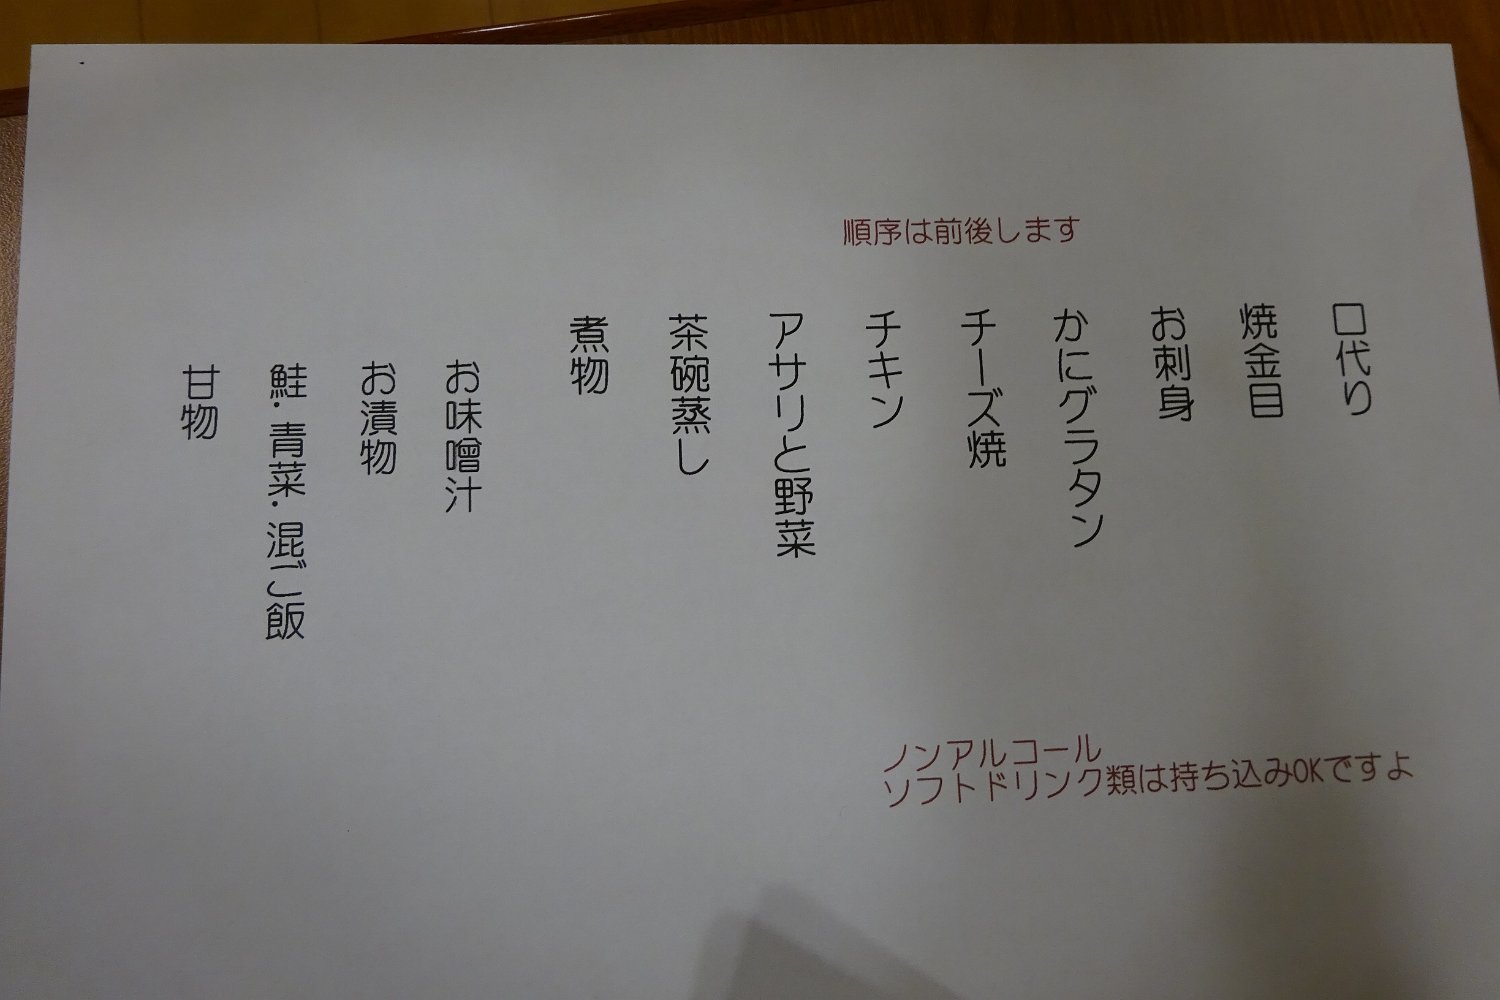 順序は前後します
口代り
焼金目
お刺身
かにグラタン
チーズ焼
チキン
アサリと野菜
茶碗蒸し
煮物
お味噌汁
お漬物
鮭・青菜・混ご飯
甘物
ノンアルコール
ソフトドリンク類は持ち込みOKですよ